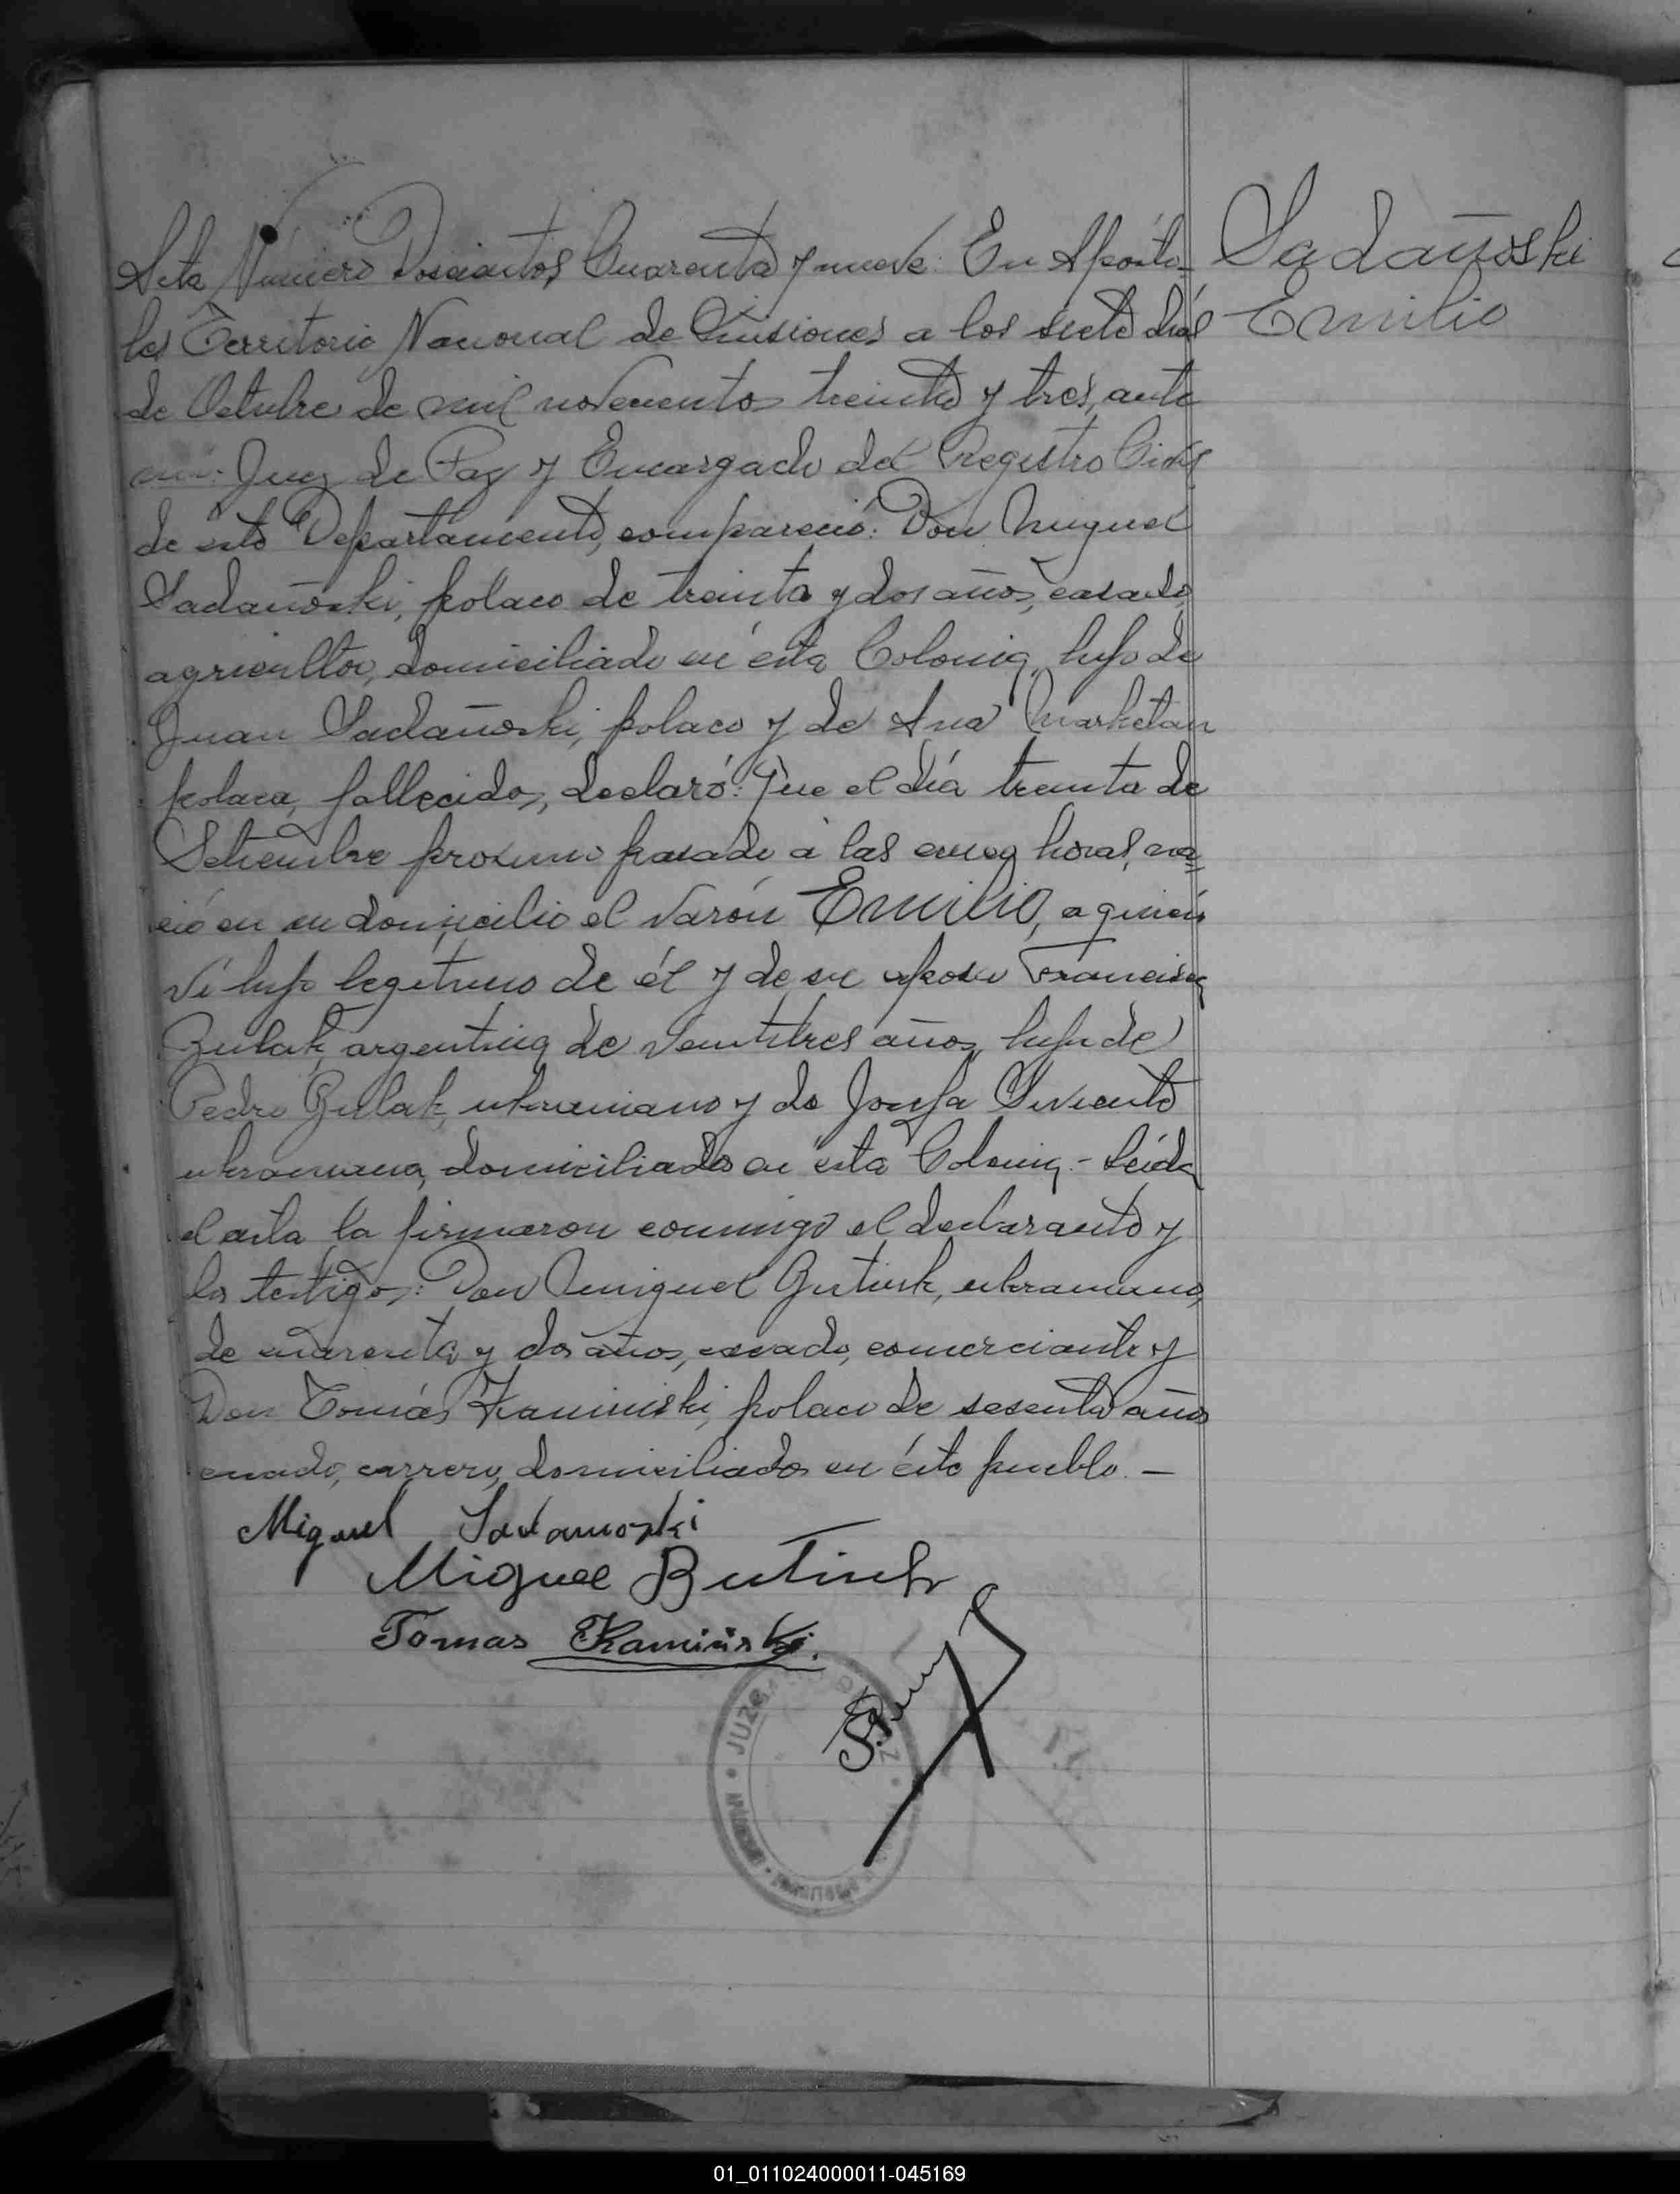 Acta Número Doscientos Cuarenta y nueve: En Apósto-
les Territorio Nacional de Misiones a los siete días
de Octubre de mil novecientos treinta y tres, ante
mi: Juez de Paz y Encargado del Registro Civil
de este Departamento, compareció: Don Miguel
Sadañoski, polaco de treinta y dos años, casado,
agricultor, domiciliado en ésta Colonia, hijo de
Juan Sadañoski, polaco y de Ana Marketan
polaca, fallecidos, declaró: Que el día treinta de
Setiembre proximo pasado a las cinco horas, na-
ció en su domicilio el varón Emilio, a quien
ví hijo legitimo de él y de su esposa Francisca
Zulak, argentina de veintitres años, hija de
Pedro Zulak, ukraniano y de Josefa
ukraniana, domiciliados en ésta Colonia.- Leída
el acta la firmaron conmigo el declarante y
los testigos: Don Miguel Butiuk, ukraniano,
de cuarenta y dos años, casado, comerciante y
Don Tomás Kaminski, polaco de sesenta años
casado, carrero, domiciliados en éste pueblo.-
Miguel Sadanoski
Miguel Butiuk
Tomas Kamiński.
JUZ
Sadañoski
Emilio
01_011024000011-045169